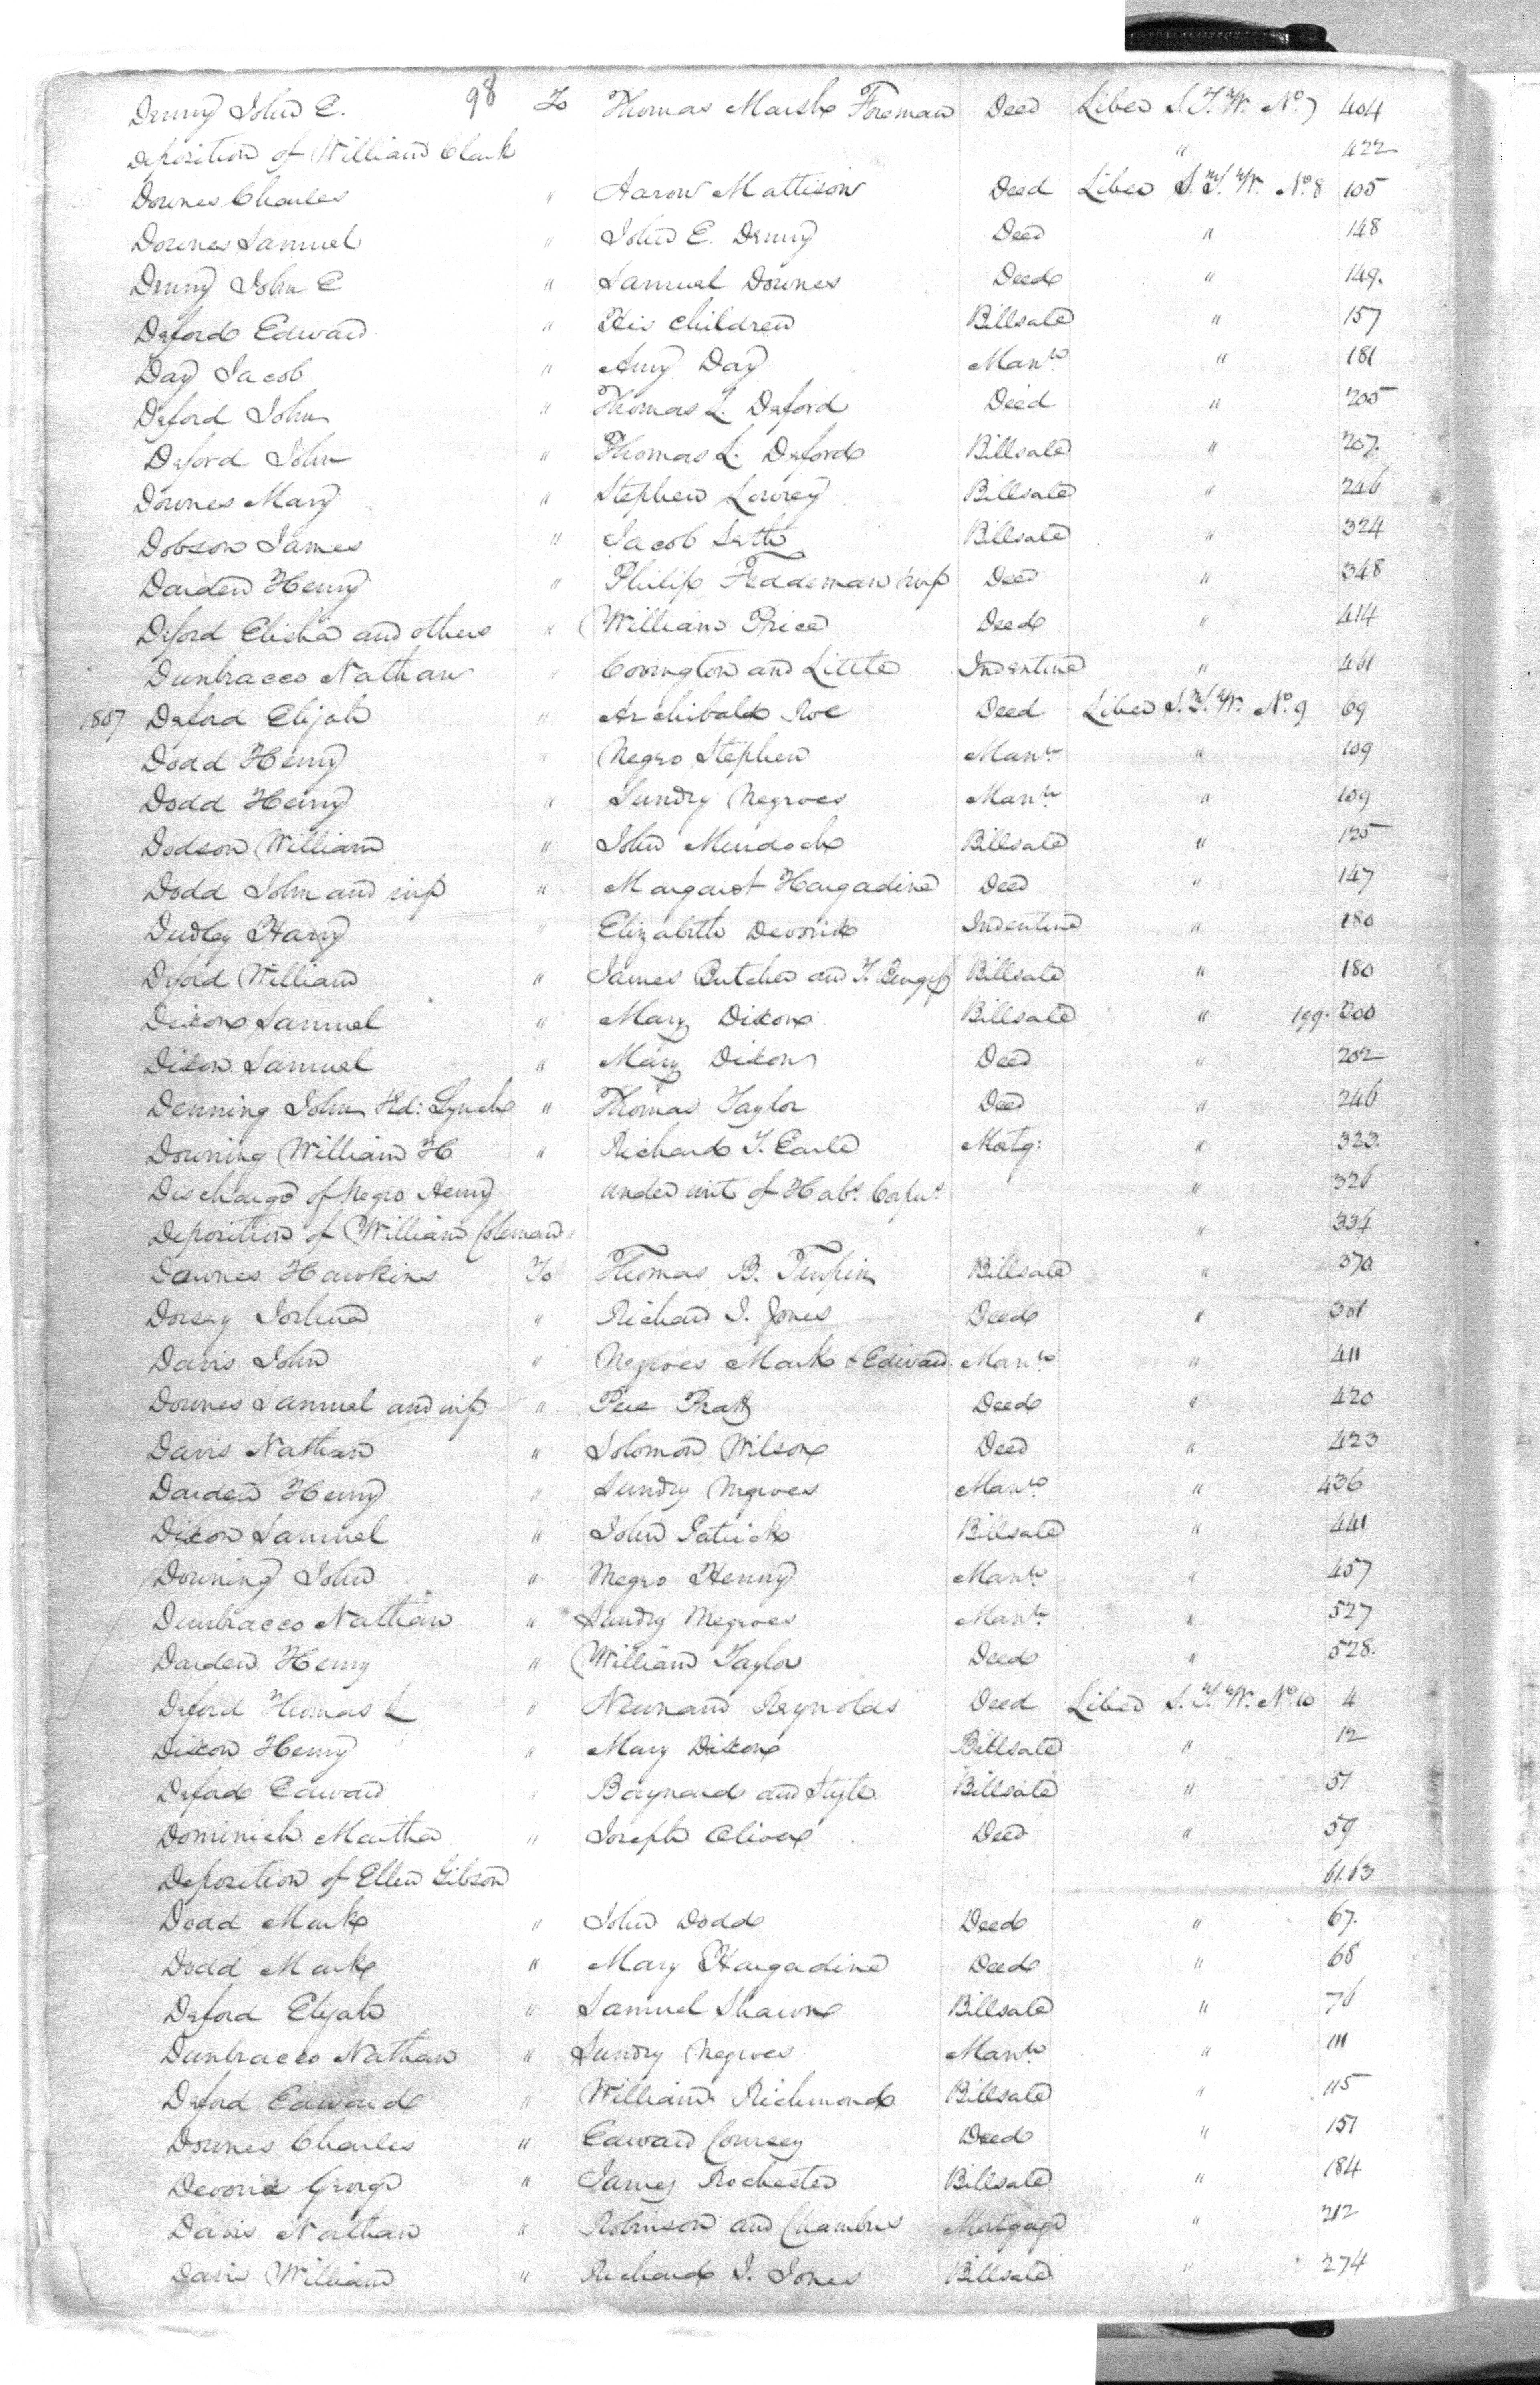 98
Denny John E. To Thomas Marsh Foreman Deed Liber S.T.W. No. 7 404
Deposition of William Clark " 422
Downes Charles " Aaron Mattison Deed Liber S.T.W. No. 8 105
Downes Samuel " John E. Denny Deed " 148
Denny John E " Samuel Downes Deed " 149.
Deford Edward " His children Billsale " 157
Day Jacob " Amy Day Mann. " 181
Deford John " Thomas L. Deford Deed " 205
Deford John " Thomas L. Deford Billsale " 207.
Downes Mary " Stephen Lowrey Billsale " 246
Dobson James " Jacob Seth Billsale " 324
Darden Henry " Philip Feddeman Deed " 348
Deford Elisha and others " William Price Deed " 414
Dunbracco Nathan " Covington and Little Indenture " 461
1807 Deford Elijah " Archibald Roe Deed Liber S.T.W. No. 9 69
Dodd Henry " Negro Stephen Mann. " 109
Dodd Henry " Sundry Negroes Mann. " 109
Dodson William " John Murdoch Billsale " 125
Dodd John and wife " Margaret Hargadine Deed " 147
Dudley Harry " Elizabeth Devorix Indenture " 180
Deford William " James Butcher and T. Billsale " 180
Dixon Samuel " Mary Dixon Billsale " 199. 200
Dixon Samuel " Mary Dixon Deed " 202
Denning John Hd: Lynch " Thomas Taylor Deed " 246
Downing William H " Richard T. Earle Mortg: " 323.
Discharge of Negro Henry under writ of Habs. Corpus. " 326
Deposition of William Coleman " " 334
Downes Hawkins To Thomas B. Turpin Billsale " 370
Dorsey Joshua " Richard I. Jones Deed "
Davis John " Negroes Mark & Edward Mann. " 411
Downes Samuel and wife " Pere Pratt Deed " 420
Davis Nathan " Solomon Wilson Deed " 423
Darden Henry " Sundry Negroes Mann. " 436
Dixon Samuel " John Patrick Billsale " 441
Downing John " Negro Henny Mann. " 457
Dunbracco Nathan " Sundry Negroes Mann. " 527
Darden Henry " William Taylor Deed " 528.
Deford Thomas L " Newnam Reynolds Deed Liber S.T.W. No. 10 4
Dixon Henry " Mary Dixon Billsale " 12
Deford Edward " Baynard and Billsale " 51
Dominick Martha " Joseph Oliver Deed " 59
Deposition of Ellen Gibson 61.63
Dodd Mark " John Dodd Deed " 67.
Dodd Mark " Mary Hargadine Deed " 68
Deford Elijah " Samuel Shawn Billsale " 76
Dunbracco Nathan " Sundry Negroes Mann. " 111
Deford Edward " William Richmond Billsale " 115
Downes Charles " Edward Coursey Deed " 151
Devorix George " James Rochester Billsale " 184
Davis Nathan " Robinson and Chambers Mortgage " 212
Davis William " Richard I. Jones Billsale " 274